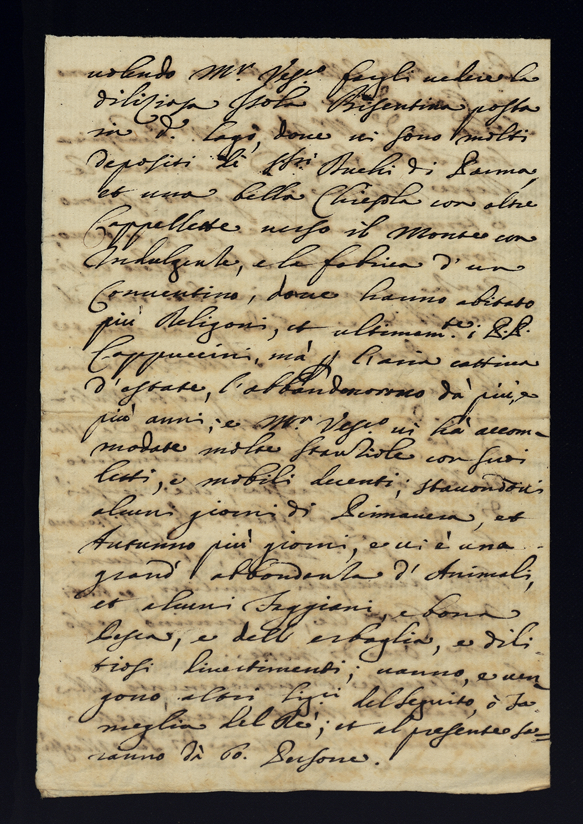 uolendo Mr. Vesc.o fargli uedere la
dilitiosa Isola Bisentina posta
in d.o lago, doue ui sono molti
depositi di Duchi di Parma,
et una bella Chiesola con altre
Cappellette uerso il Monte con
Indulgente, e la fabrica d'un
Conuentino, doue hanno abitato
più Religiosi, et ultimam.te i P.P.
Cappuccini, mà p l'aria cattiua
d'estate, l'abbandonorono dà più, e
più anni; e Mr. Vesc.o ui hà accom-
modate molte stanziole con suoi
letti, e mobili decenti; stauondoui
alcuni giorni di Primauera, et
Autunno più giorni, e ui è una
grand' abbondanza d'Animali,
et alcuni Faggiani, e bona
Pesca, e dell' erbaglia, e dili-
tiosi diuertimenti; uanno, e uen-
gono altri del seguito, ò fa-
meglia del Rè; et al presente sa=
ranno dà 60. Persone.